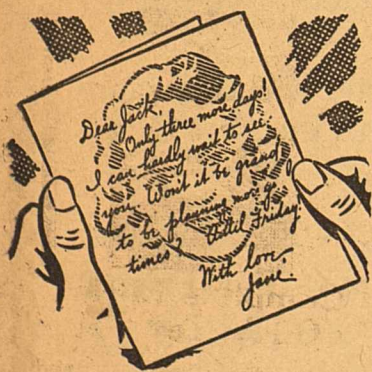 Dear Jack,
Only three more days!
I can hardly wait to see
you. Won't it be grand
to be planning more
times? Until Friday
With love,
Jane.